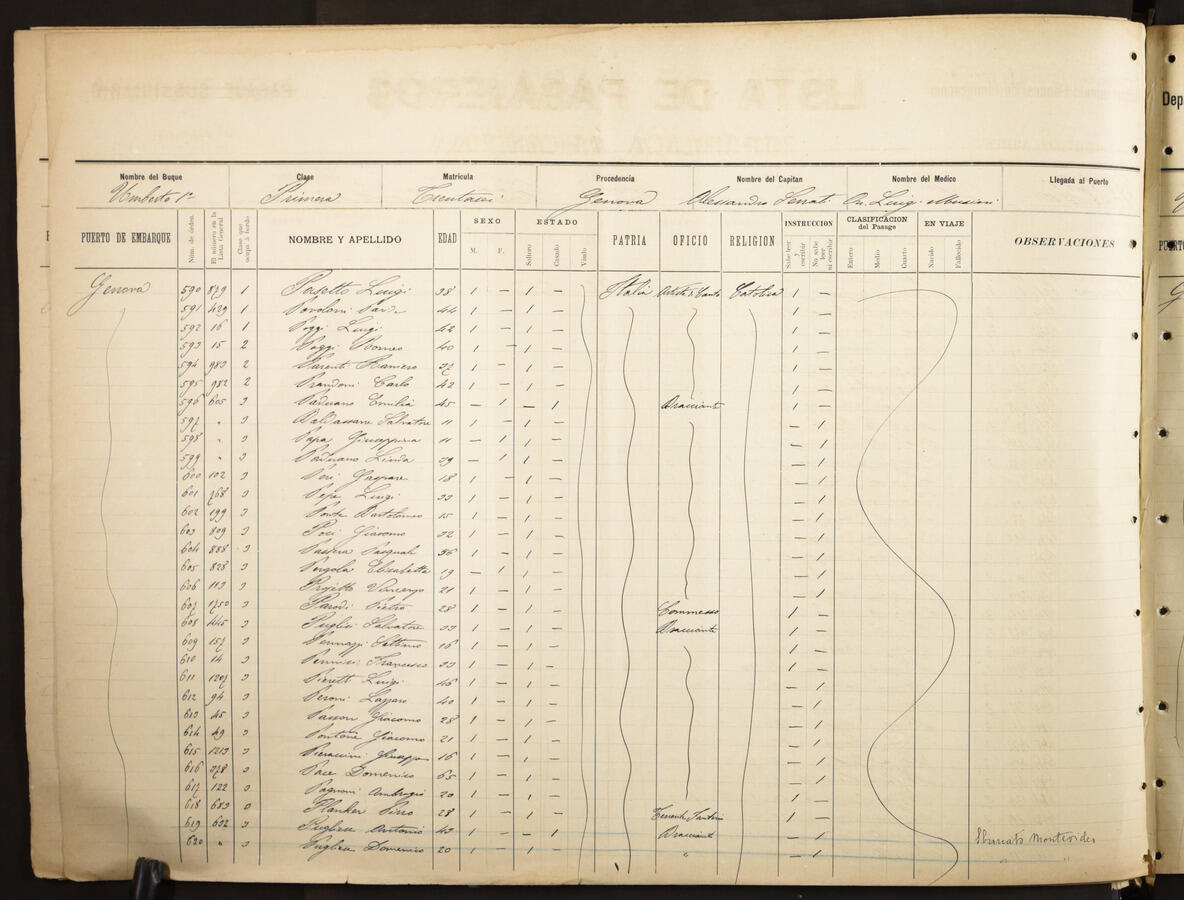 Nombre del Buque Clase Matricula Procedencia Nombre del Capitan Nombre del Medico Llegada al Puerto
Umberto 1º Primera Genova Alessandro Dn. Luigi
PUERTO DE EMBARQUE Núm. de órden. El número en la Lista General Clase que ocupa á bordo NOMBRE Y APELLIDO EDAD SEXO M. F. ESTADO Soltero Casado Viudo PATRIA OFICIO RELIGION INSTRUCCION Sabe leer y escribir No sabe leer ni escribir CLASIFICACION del Pasage Entero Medio Cuarto EN VIAJE Nacido Fallecido OBSERVACIONES
Genova 590 879 1 Luigi 38 1 — 1 — Italia Artista di Canto Catolica 1 —
591 429 1 44 1 — 1 — 1 —
592 16 1 Poggi Luigi 42 1 — 1 — 1 —
593 15 2 Poggi Romeo 40 1 — 1 — 1 —
594 983 2 Parenti Raniero 32 1 — 1 — 1 —
595 982 2 Prandoni Carlo 42 1 — 1 — 1 —
596 605 3 Paduano Emilia 45 — 1 — 1 Bracciante — 1
597 " 3 Baldassare Salvatore 11 1 — 1 — — 1
598 " 3 Papa Giuseppina 11 — 1 1 — — 1
599 " 3 Paduano Linda 29 — 1 1 — — 1
600 102 3 Peri Gaspare 18 1 — 1 — — 1
601 768 3 Pepe Luigi 33 1 — 1 — — 1
602 199 3 Ponte Bartolomeo 15 1 — 1 — — 1
603 809 3 Giacomo 32 1 — 1 — — 1
604 888 3 Passera Pasquale 36 1 — 1 — — 1
605 828 3 Pergola Elisabetta 19 — 1 1 — — 1
606 113 3 Progetto Vincenzo 21 1 — 1 — — 1
607 1250 3 Parodi Pietro 28 1 — 1 — Commesso 1 —
608 445 3 Puglisi Salvatore 33 1 — 1 — Bracciante — 1
609 157 3 Pennazzi Settimo 16 1 — 1 — — 1
610 14 3 Pennisi Francesco 33 1 — 1 — — 1
611 1207 3 Pieretti Luigi 46 1 — 1 — — 1
612 94 3 Peroni Lazzaro 40 1 — 1 — — 1
613 45 3 Passoni Giacomo 28 1 — 1 — — 1
614 49 3 Pontone Giacomo 21 1 — 1 — — 1
615 1213 3 Pieraccini Giuseppe 16 1 — 1 — — 1
616 378 3 Pace Domenico 65 1 — 1 — — 1
617 122 3 Pagnoni Ambrogio 20 1 — 1 — 1 —
618 683 3 Planker Pirro 28 1 — 1 — 1 —
619 632 3 Puglisi Antonio 43 1 — — 1 Bracciante — 1 Sbarcato Montevideo
620 " 3 Puglisi Domenico 20 1 — 1 — " — 1 " "